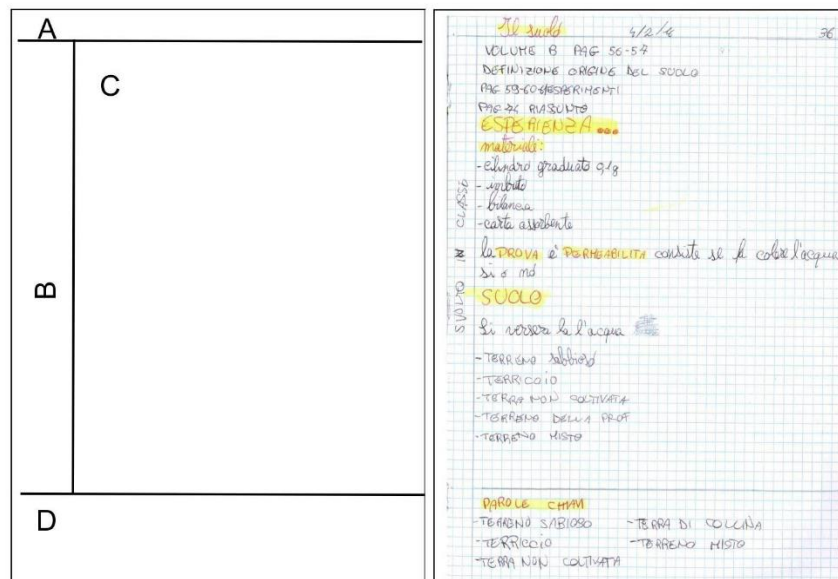 A
C
B
D
Il suolo 4/2/4 36
VOLUME B PAG 56-57
DEFINIZIONE ORIGINE DEL SUOLO
PAG 59-60 ESPERIMENTI
PAG 74 RIASSUNTO
ESPERIENZA...
materiale:
-cilindro graduato
-imbuto
-bilancia
-carta assorbente
SVOLTO IN CLASSE
la PROVA è PERMEABILITA consiste se fa colare l'acqua
si o nó
SUOLO
Si versera la l'acqua
-TERRENO sabbioso
-TERRICCIO
-TERRA NON COLTIVATA
-TERRENO DELLA PROF
-TERRENO MISTO
PAROLE CHIAVI
-TERRENO SABIOSO -TERRA DI COLLINA
-TERRICCIO -TERRENO MISTO
-TERRA NON COLTIVATA